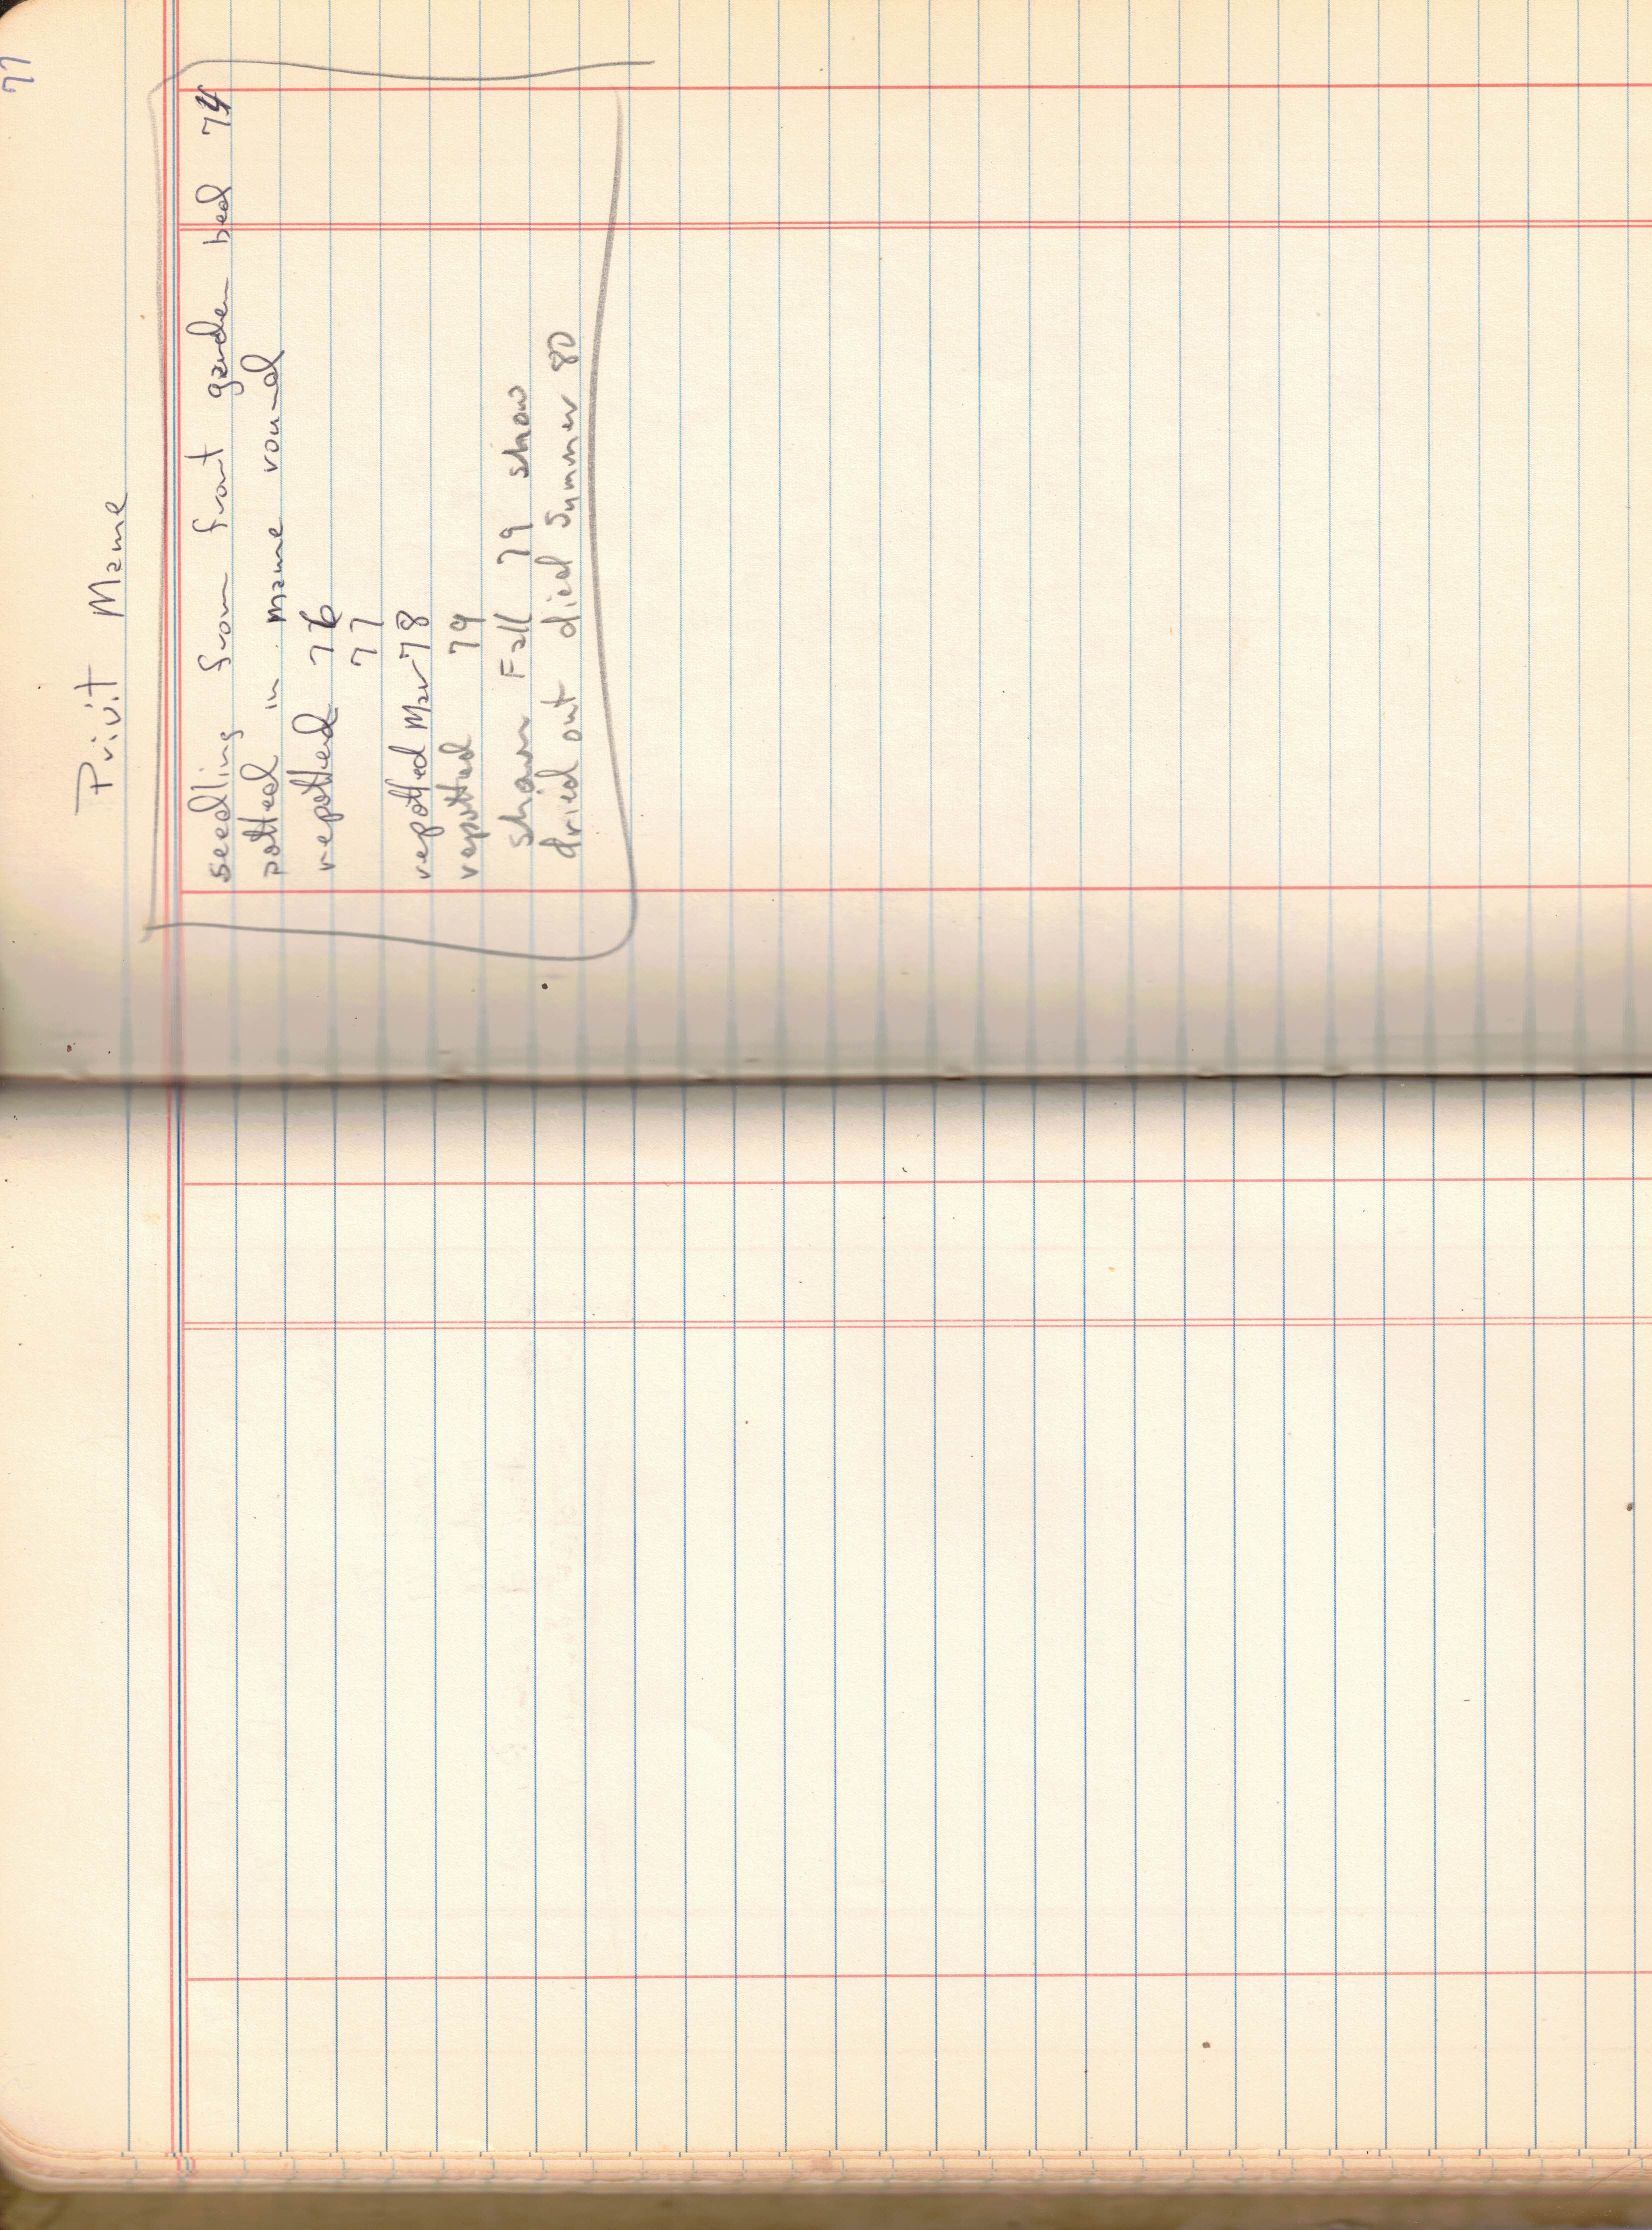 77
Privit Mame
seedling from front garden bed 74
potted in mame round
repotted 76
77
repotted Mar 78
repotted 79
shown Fall 79 show
dried out died Summer 80